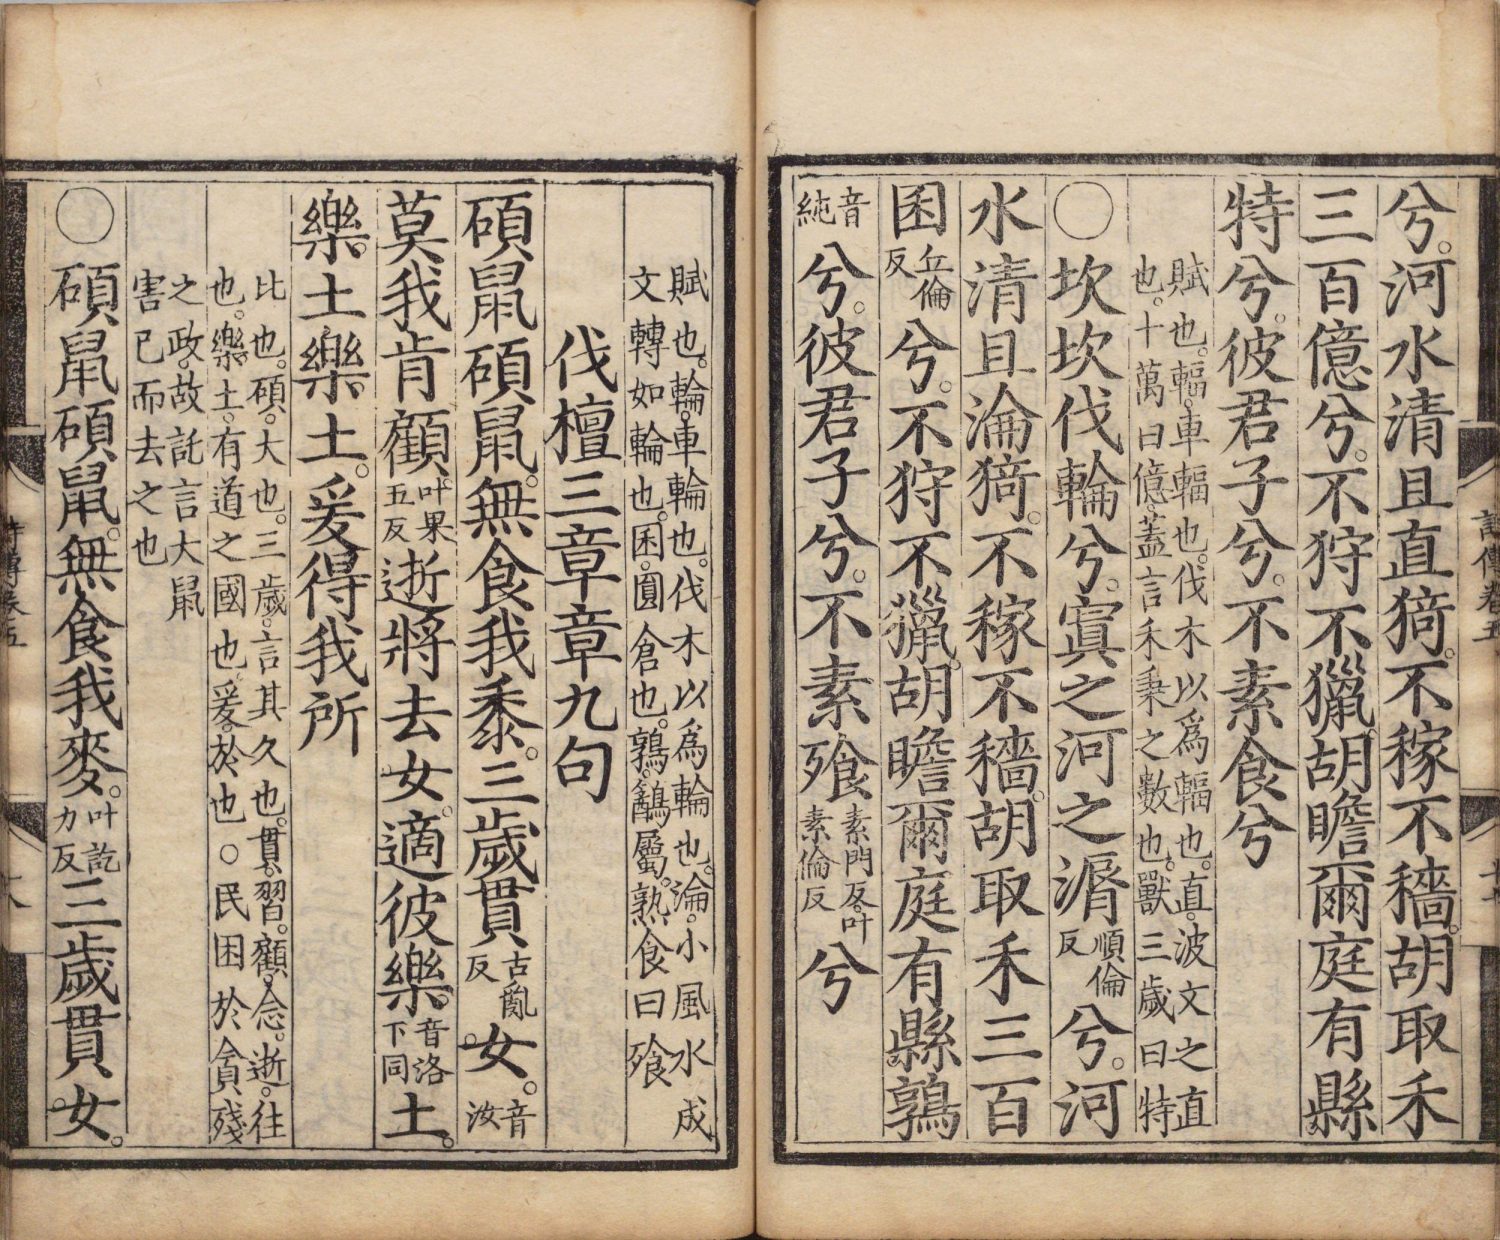 兮。河水清且直猗。不稼不穡。胡取禾
三百億兮。不狩不獵。胡瞻爾庭有縣
特兮。彼君子兮。不素食兮
賦也。輻。車輻也。伐木以爲輻也。直。波文之直
也。十萬曰億。蓋言禾秉之數也。獸三歲曰特
○坎坎伐輪兮。寘之河之漘
順倫
反
兮。河
水清且淪猗。不稼不穡。胡取禾三百
囷
丘倫
反
兮。不狩不獵。胡瞻爾庭有縣鶉
音
純
兮。彼君子兮。不素飧
素門反。叶
素倫反
兮
賦也。輪。車輪也。伐木以爲輪也。淪。小風水成
文轉如輪也。囷。圓倉也。鶉。鷂屬。熟食曰飧
伐檀三章章九句
碩鼠碩鼠。無食我黍。三歲貫
古亂
反
女。
音
汝
莫我肯顧
叶果
五反
逝將去女。適彼樂
音洛
下同
土。
樂土樂土。爰得我所
比也。碩。大也。三歲。言其久也。貫。習。顧。念。逝。往
也。樂土。有道之國也。爰。於也。○民困於貪殘
之政。故託言大鼠
害已而去之也
○碩鼠碩鼠。無食我麥。
叶訖
力反
三歲貫女。
詩傳卷五
詩傳卷五